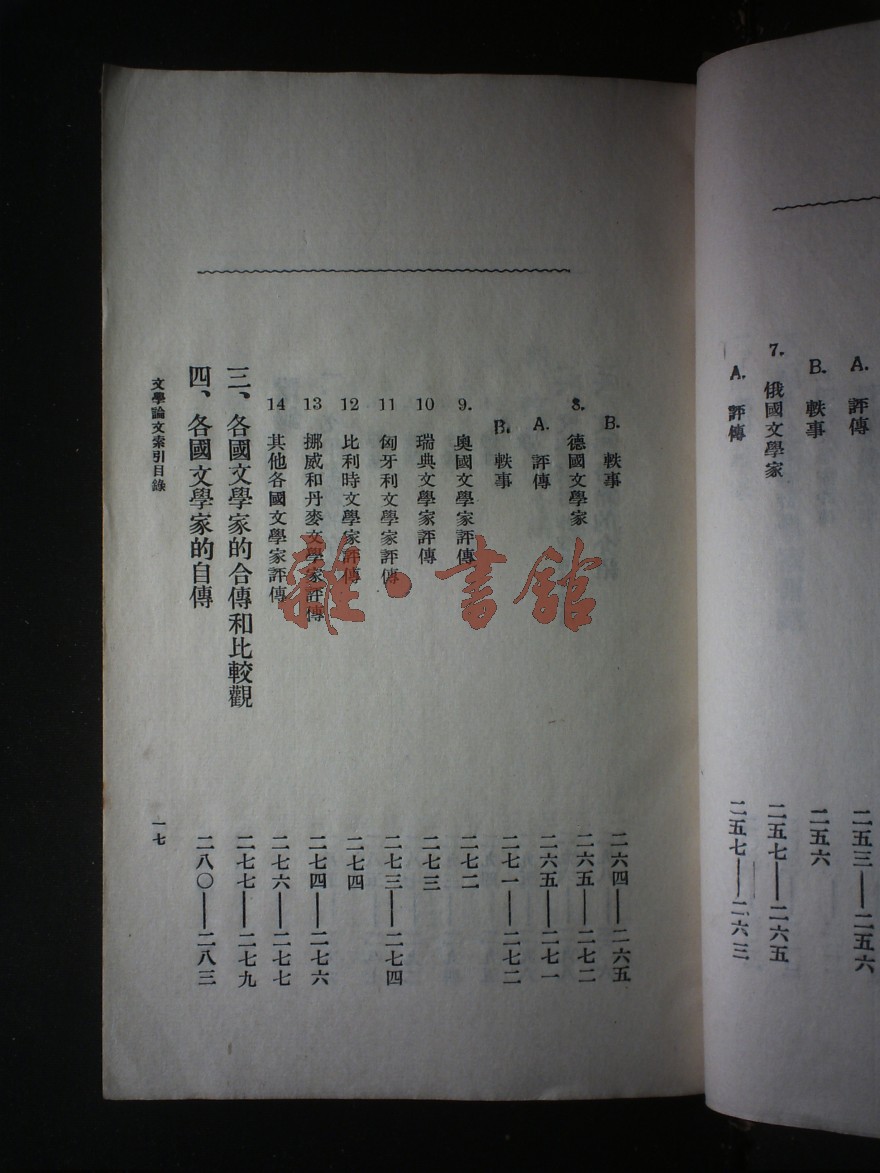 A. 評傳 二五三——二五六
B. 軼事 二五六
7. 俄國文學家 二五七——二六五
A. 評傳 二五七——二六三
B. 軼事 二六四——二六五
8. 德國文學家 二六五——二七二
A. 評傳 二六五——二七一
B. 軼事 二七一——二七二
9. 奧國文學家評傳 二七二
10 瑞典文學家評傳 二七三
11 匈牙利文學家評傳 二七三——二七四
12 比利時文學家評傳 二七四
13 挪威和丹麥文學家評傳 二七四——二七六
14 其他各國文學家評傳 二七六——二七七
三、各國文學家的合傳和比較觀 二七七——二七九
四、各國文學家的自傳 二八〇——二八三
文學論文索引目錄 一七
雜·書館